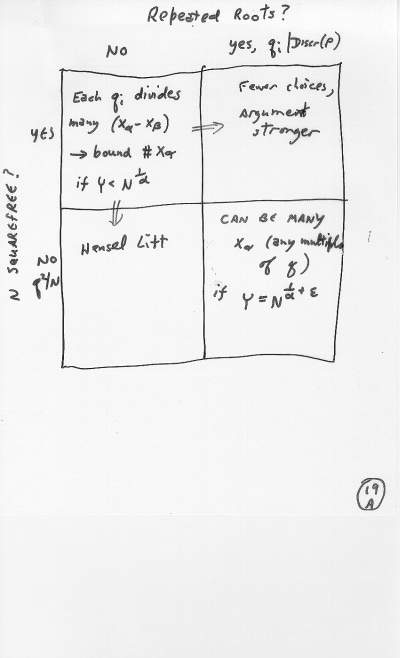 Repeated Roots?
NO
yes, qi | Discr(P)
N SQUAREFREE?
YES
Each qi divides
many (Xα - Xβ)
→ bound # Xα
if Y < N^{1/α}
⇒
Fewer choices,
Argument
stronger
⇓
NO
q²|N
Hensel Lift
CAN BE MANY
Xα (any multiple
of q)
if Y = N^{1/α + ε}
19
A